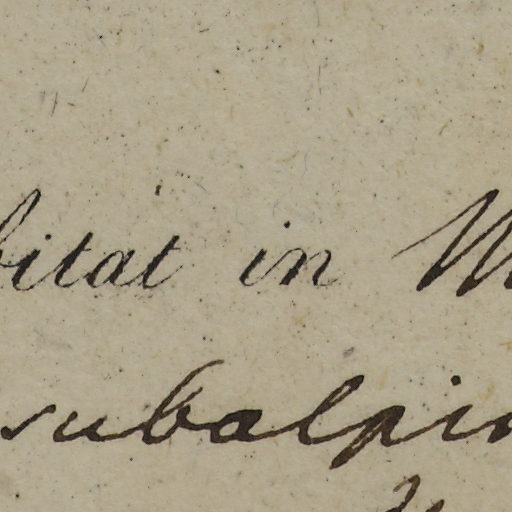 bitat in M
subalpin